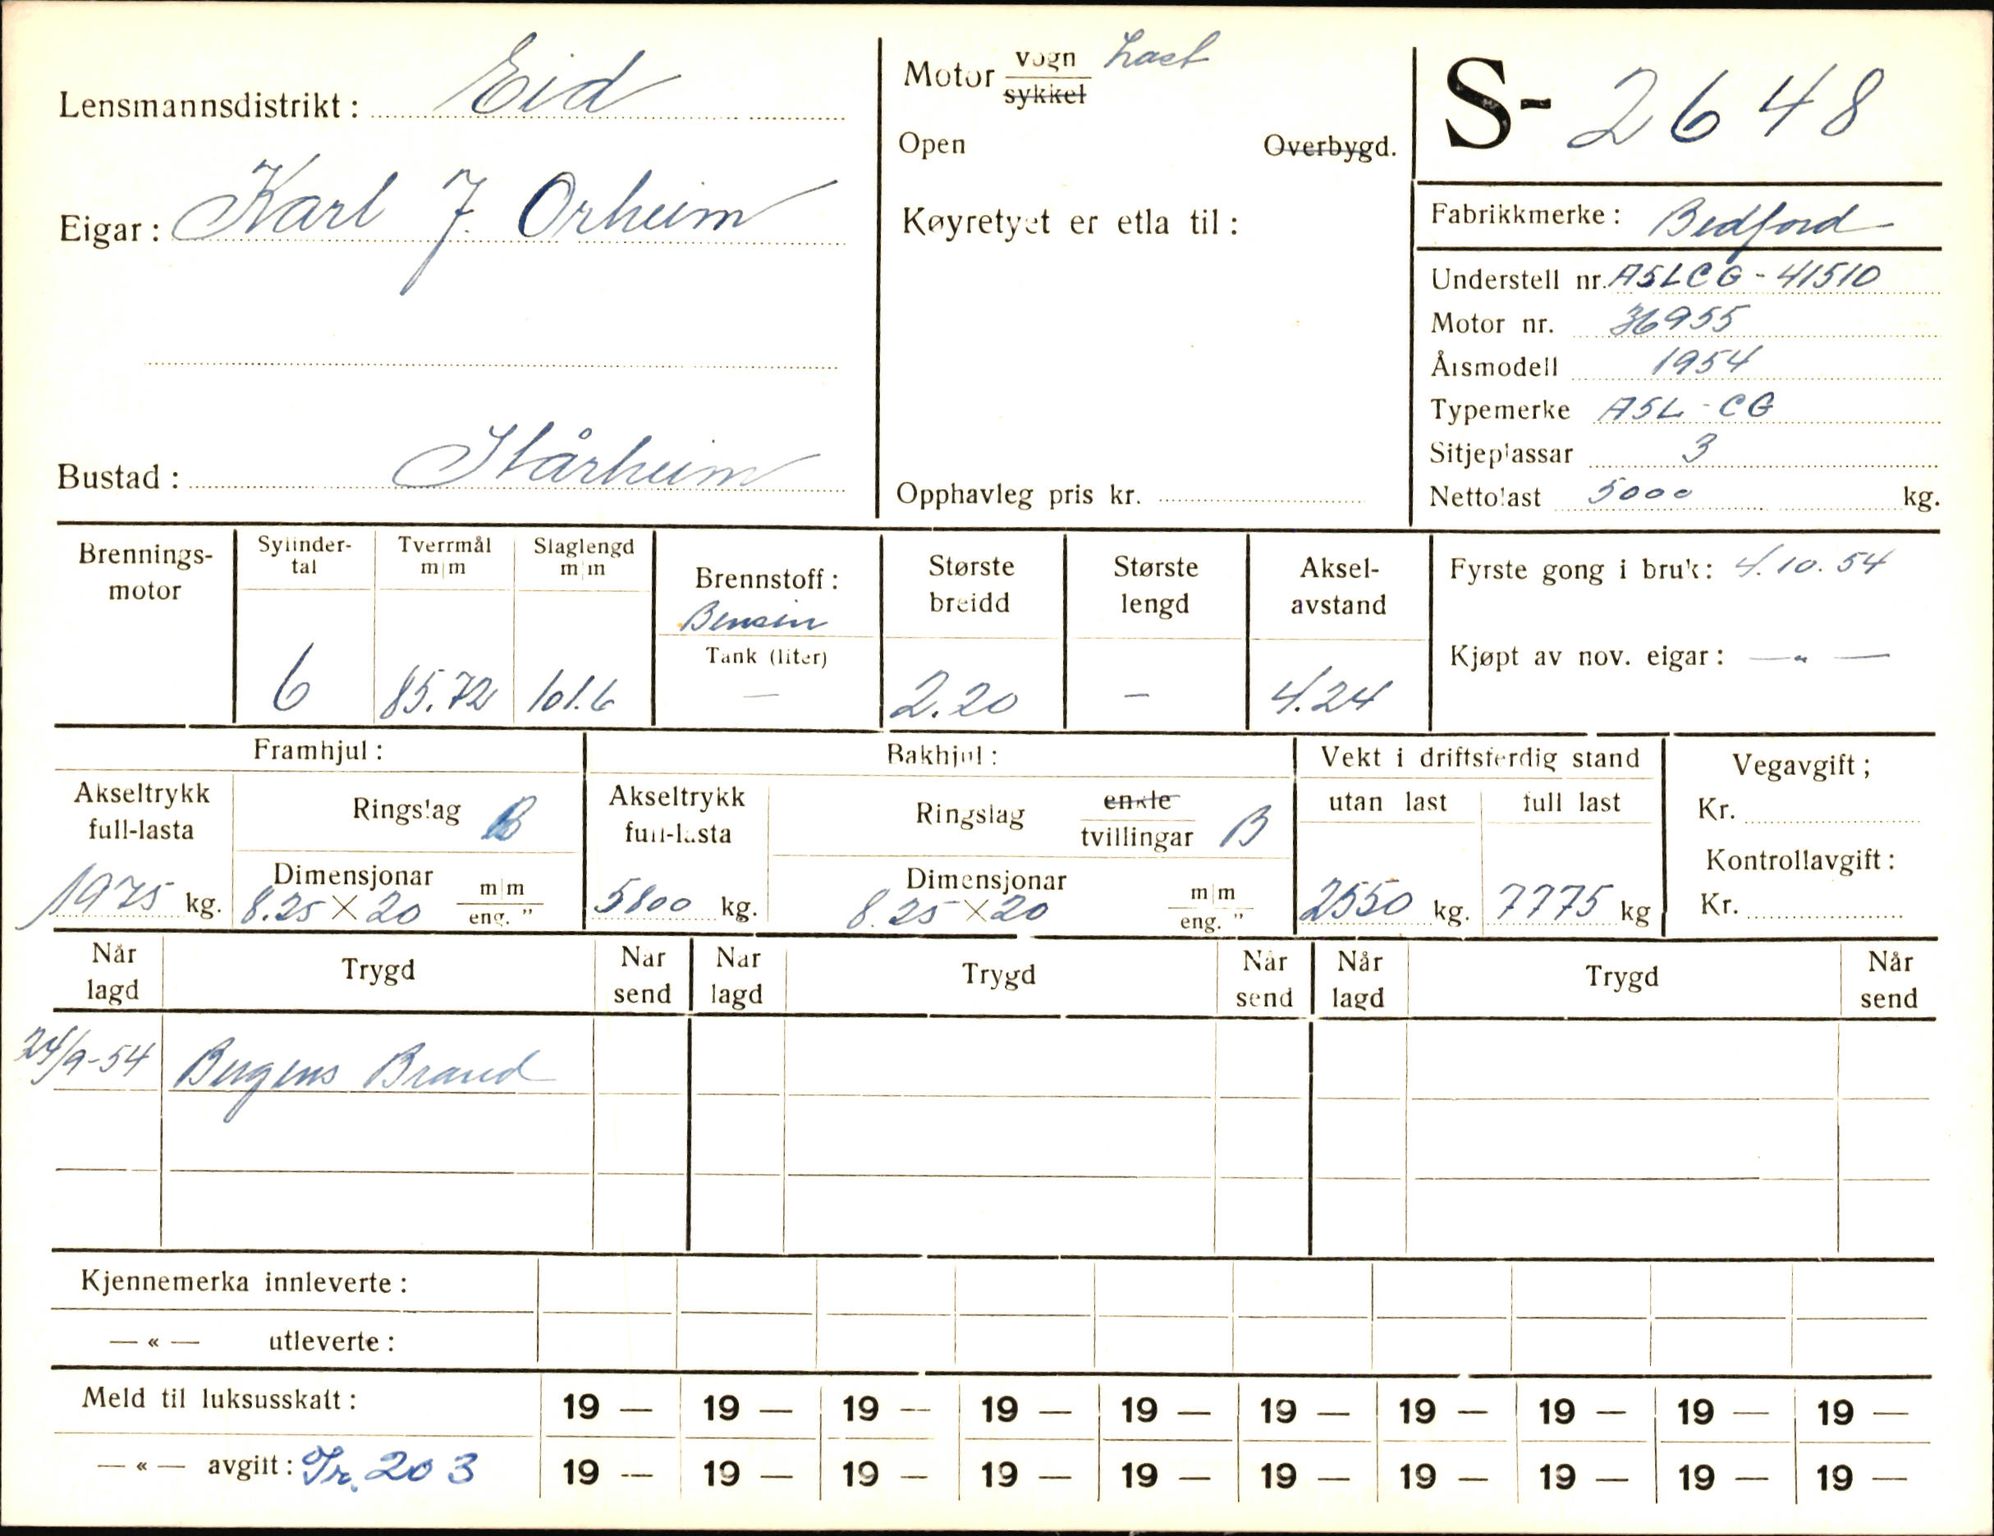 Lensmannsdistrikt: Eid
Eigar: Karl J. Orheim
Bustad: Hårheim
Motor vogn Last
sykkel
Open Overbygd.
Køyretyet er etla til:
Opphavleg pris kr.
S- 2648
Fabrikkmerke: Bedford
Understell nr. A5LCG-41510
Motor nr. 36955
Årsmodell 1954
Typemerke A5L-CG
Sitjeplassar 3
Nettolast 5000 kg.
Brennings-
motor
Sylinder-
tal
6
Tverrmål
m|m
85.72
Slaglengd
m|m
101.6
Brennstoff:
Bensin
Tank (liter)
—
Største
breidd
2.20
Største
lengd
—
Aksel-
avstand
4.24
Fyrste gong i bruk: 4.10.54
Kjøpt av nov. eigar: — „ —
Framhjul:
Akseltrykk
full-lasta
1975 kg.
Ringslag B
Dimensjonar m|m
8.25 X 20 eng. "
Bakhjul:
Akseltrykk
full-lasta
5800 kg.
Ringslag enkle
tvillingar B
Dimensjonar m|m
8.25 X 20 eng. "
Vekt i driftsferdig stand
utan last full last
2550 kg. 7775 kg
Vegavgift;
Kr.
Kontrollavgift:
Kr.
Når
lagd Trygd Når
send Når
lagd Trygd Når
send Når
lagd Trygd Når
send
24/9-54 Bergens Brand
Kjennemerka innleverte:
— « — utleverte:
Meld til luksusskatt: 19 — 19 — 19 — 19 — 19 — 19 — 19 — 19 — 19 — 19 —
— « — avgift: Tr. 203 19 — 19 — 19 — 19 — 19 — 19 — 19 — 19 — 19 — 19 —